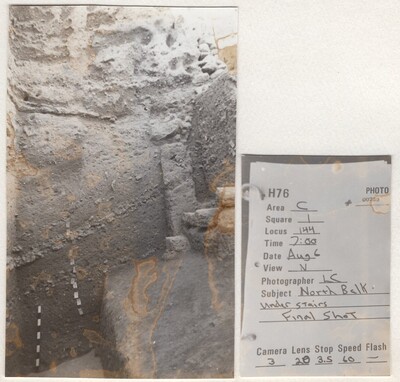 H76 PHOTO
Area C
Square 1
Locus 144
Time 7:00
Date Aug 6
View N
Photographer LC
Subject North Balk.
under stairs
Final Shot
Camera Lens Stop Speed Flash
3 28 3.5 60 —